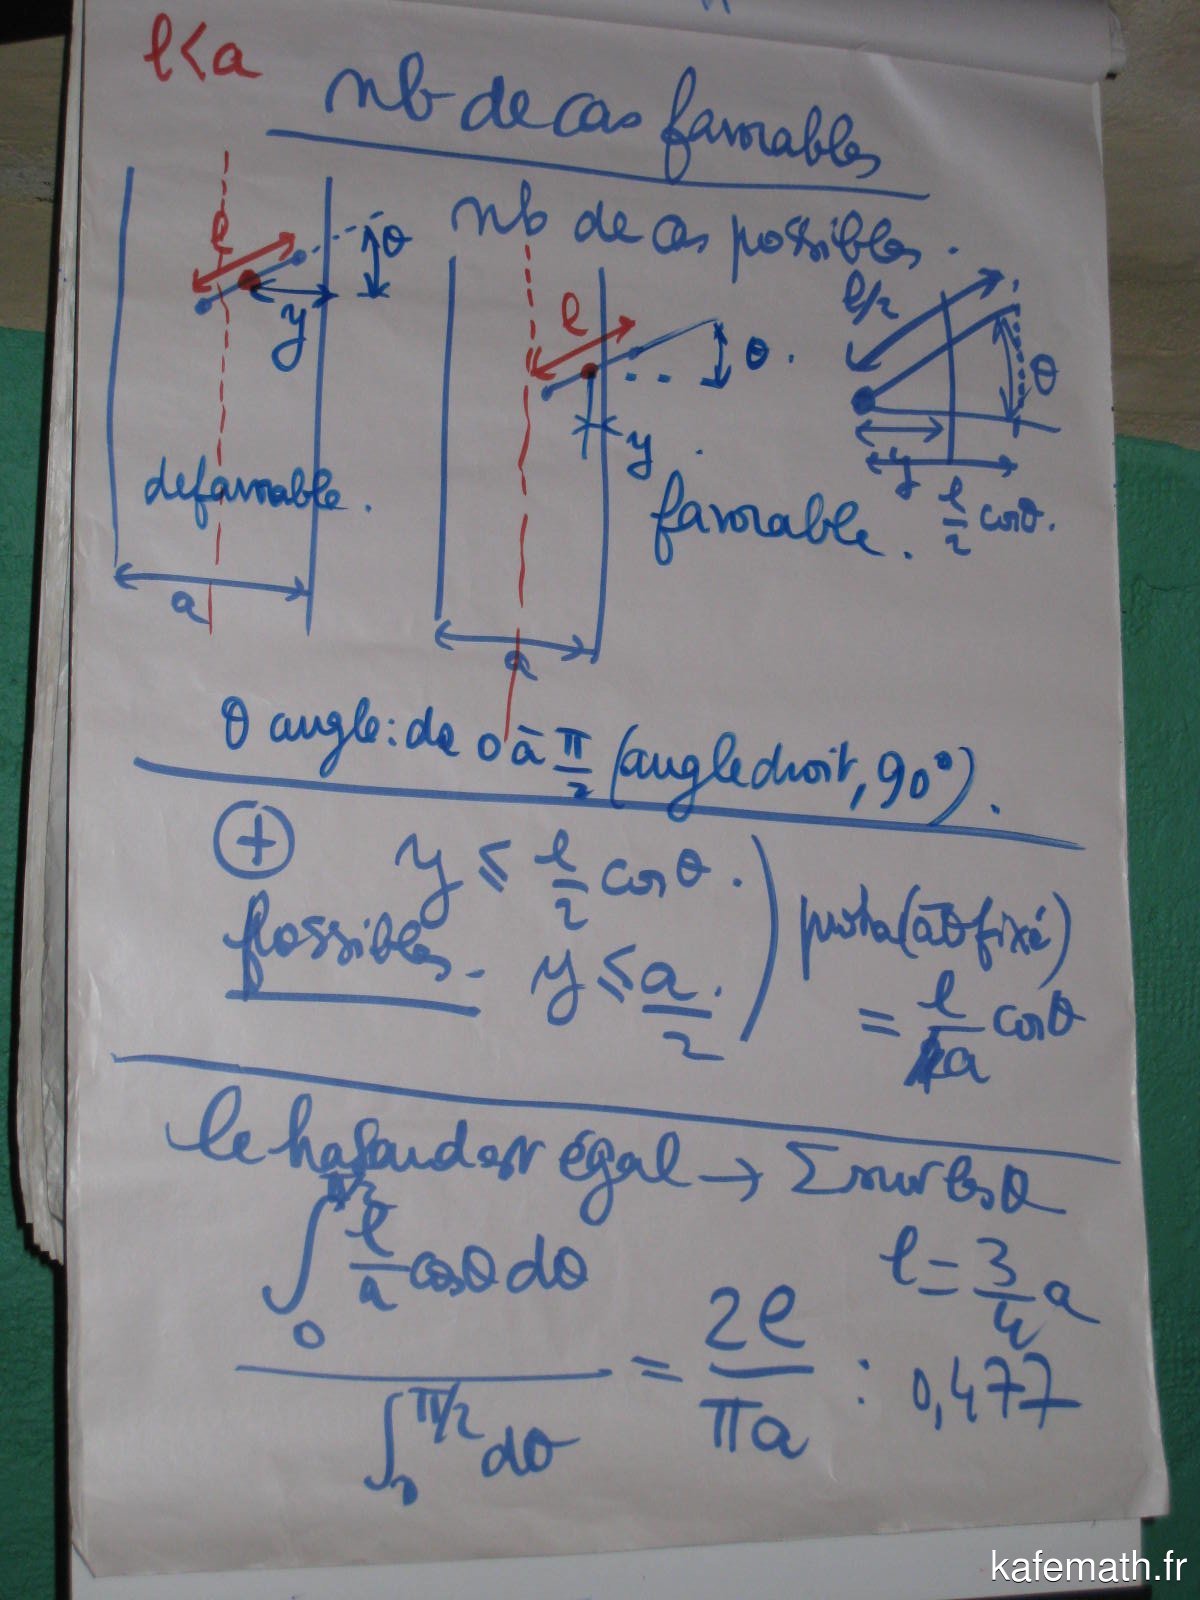 l<a
nb de cas favorables
nb de cas possibles.
l
θ
y
l
θ.
y.
l/2
θ
y
l/2 cosθ.
defavorable.
favorable.
a
a
θ angle: de 0 à π/2 (angle droit, 90°).
+
y ≤ l/2 cosθ.
possibles.
y ≤ a/2.
proba (à θ fixé)
= l/a cosθ
le hasard est égal → Σ sur les θ
∫0 π/2 l/a cosθ dθ
l = 3/4 a
∫0 π/2 dθ
= 2l/πa : 0,477
kafemath.fr